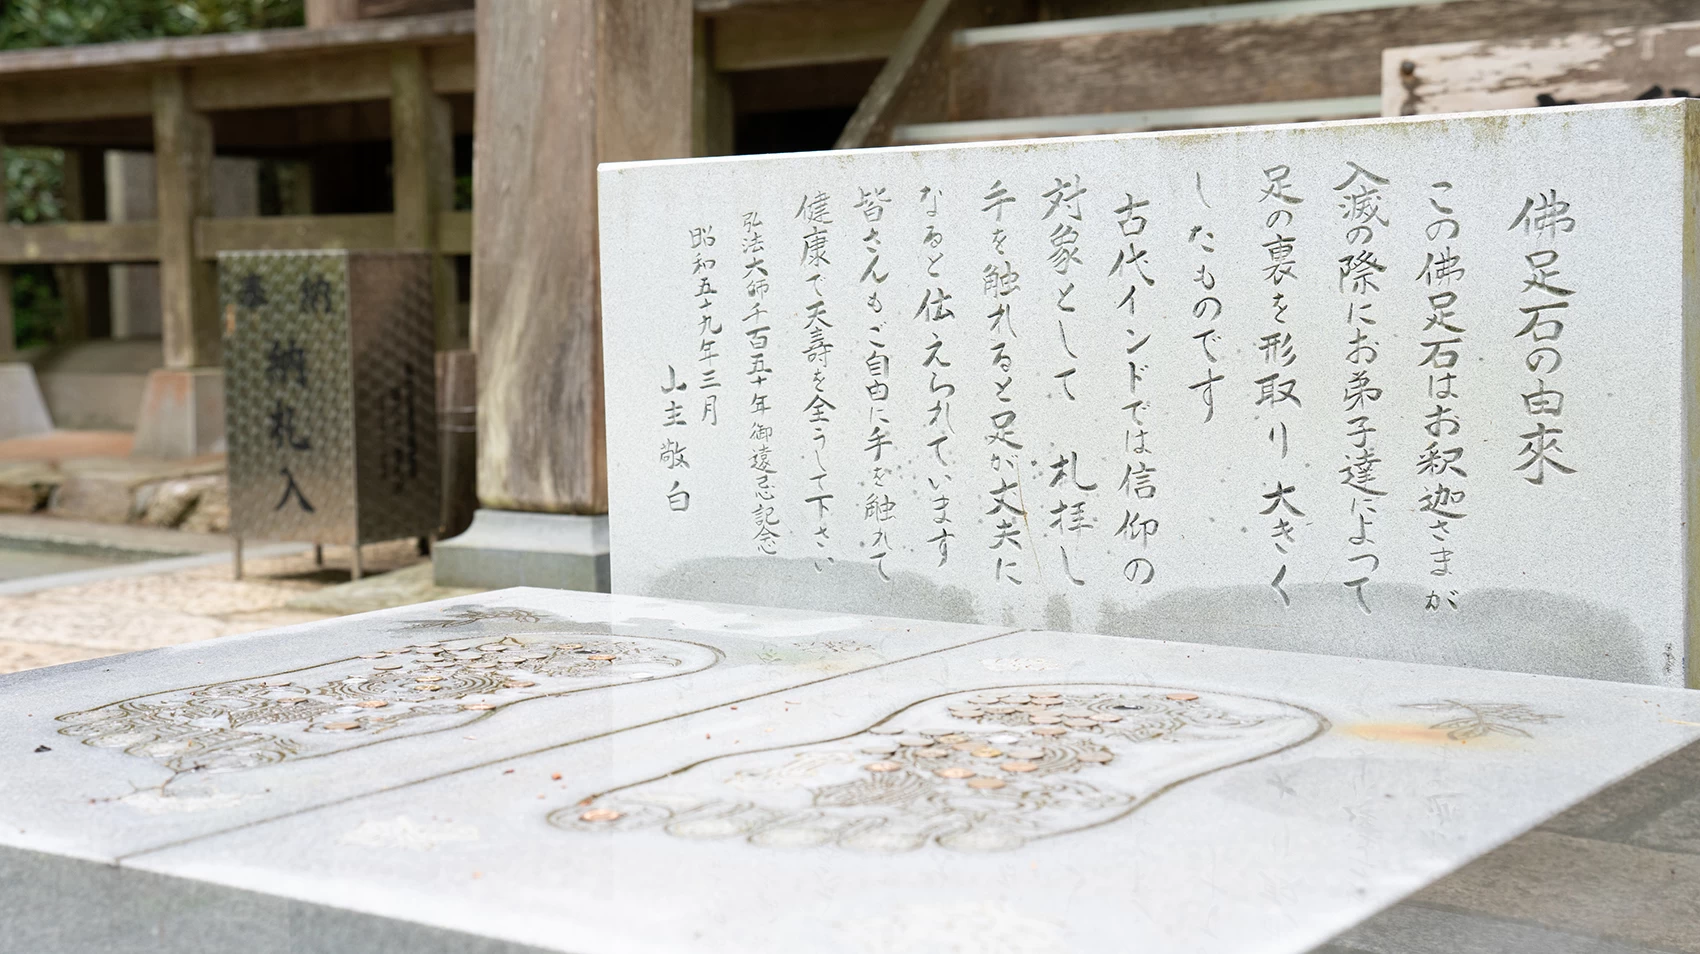 佛足石の由來
この佛足石はお釈迦さまが
入滅の際にお弟子達によって
足の裏を形取り大きく
したものです
古代インドでは信仰の
対象として 札拝し
手を触れると足が丈夫に
なると伝えられています
皆さんもご自由に手を触れて
健康で天壽を全うして下さい
弘法大師千百五十年御遠忌記念
昭和五十九年三月
山主敬白
奉納
納札入